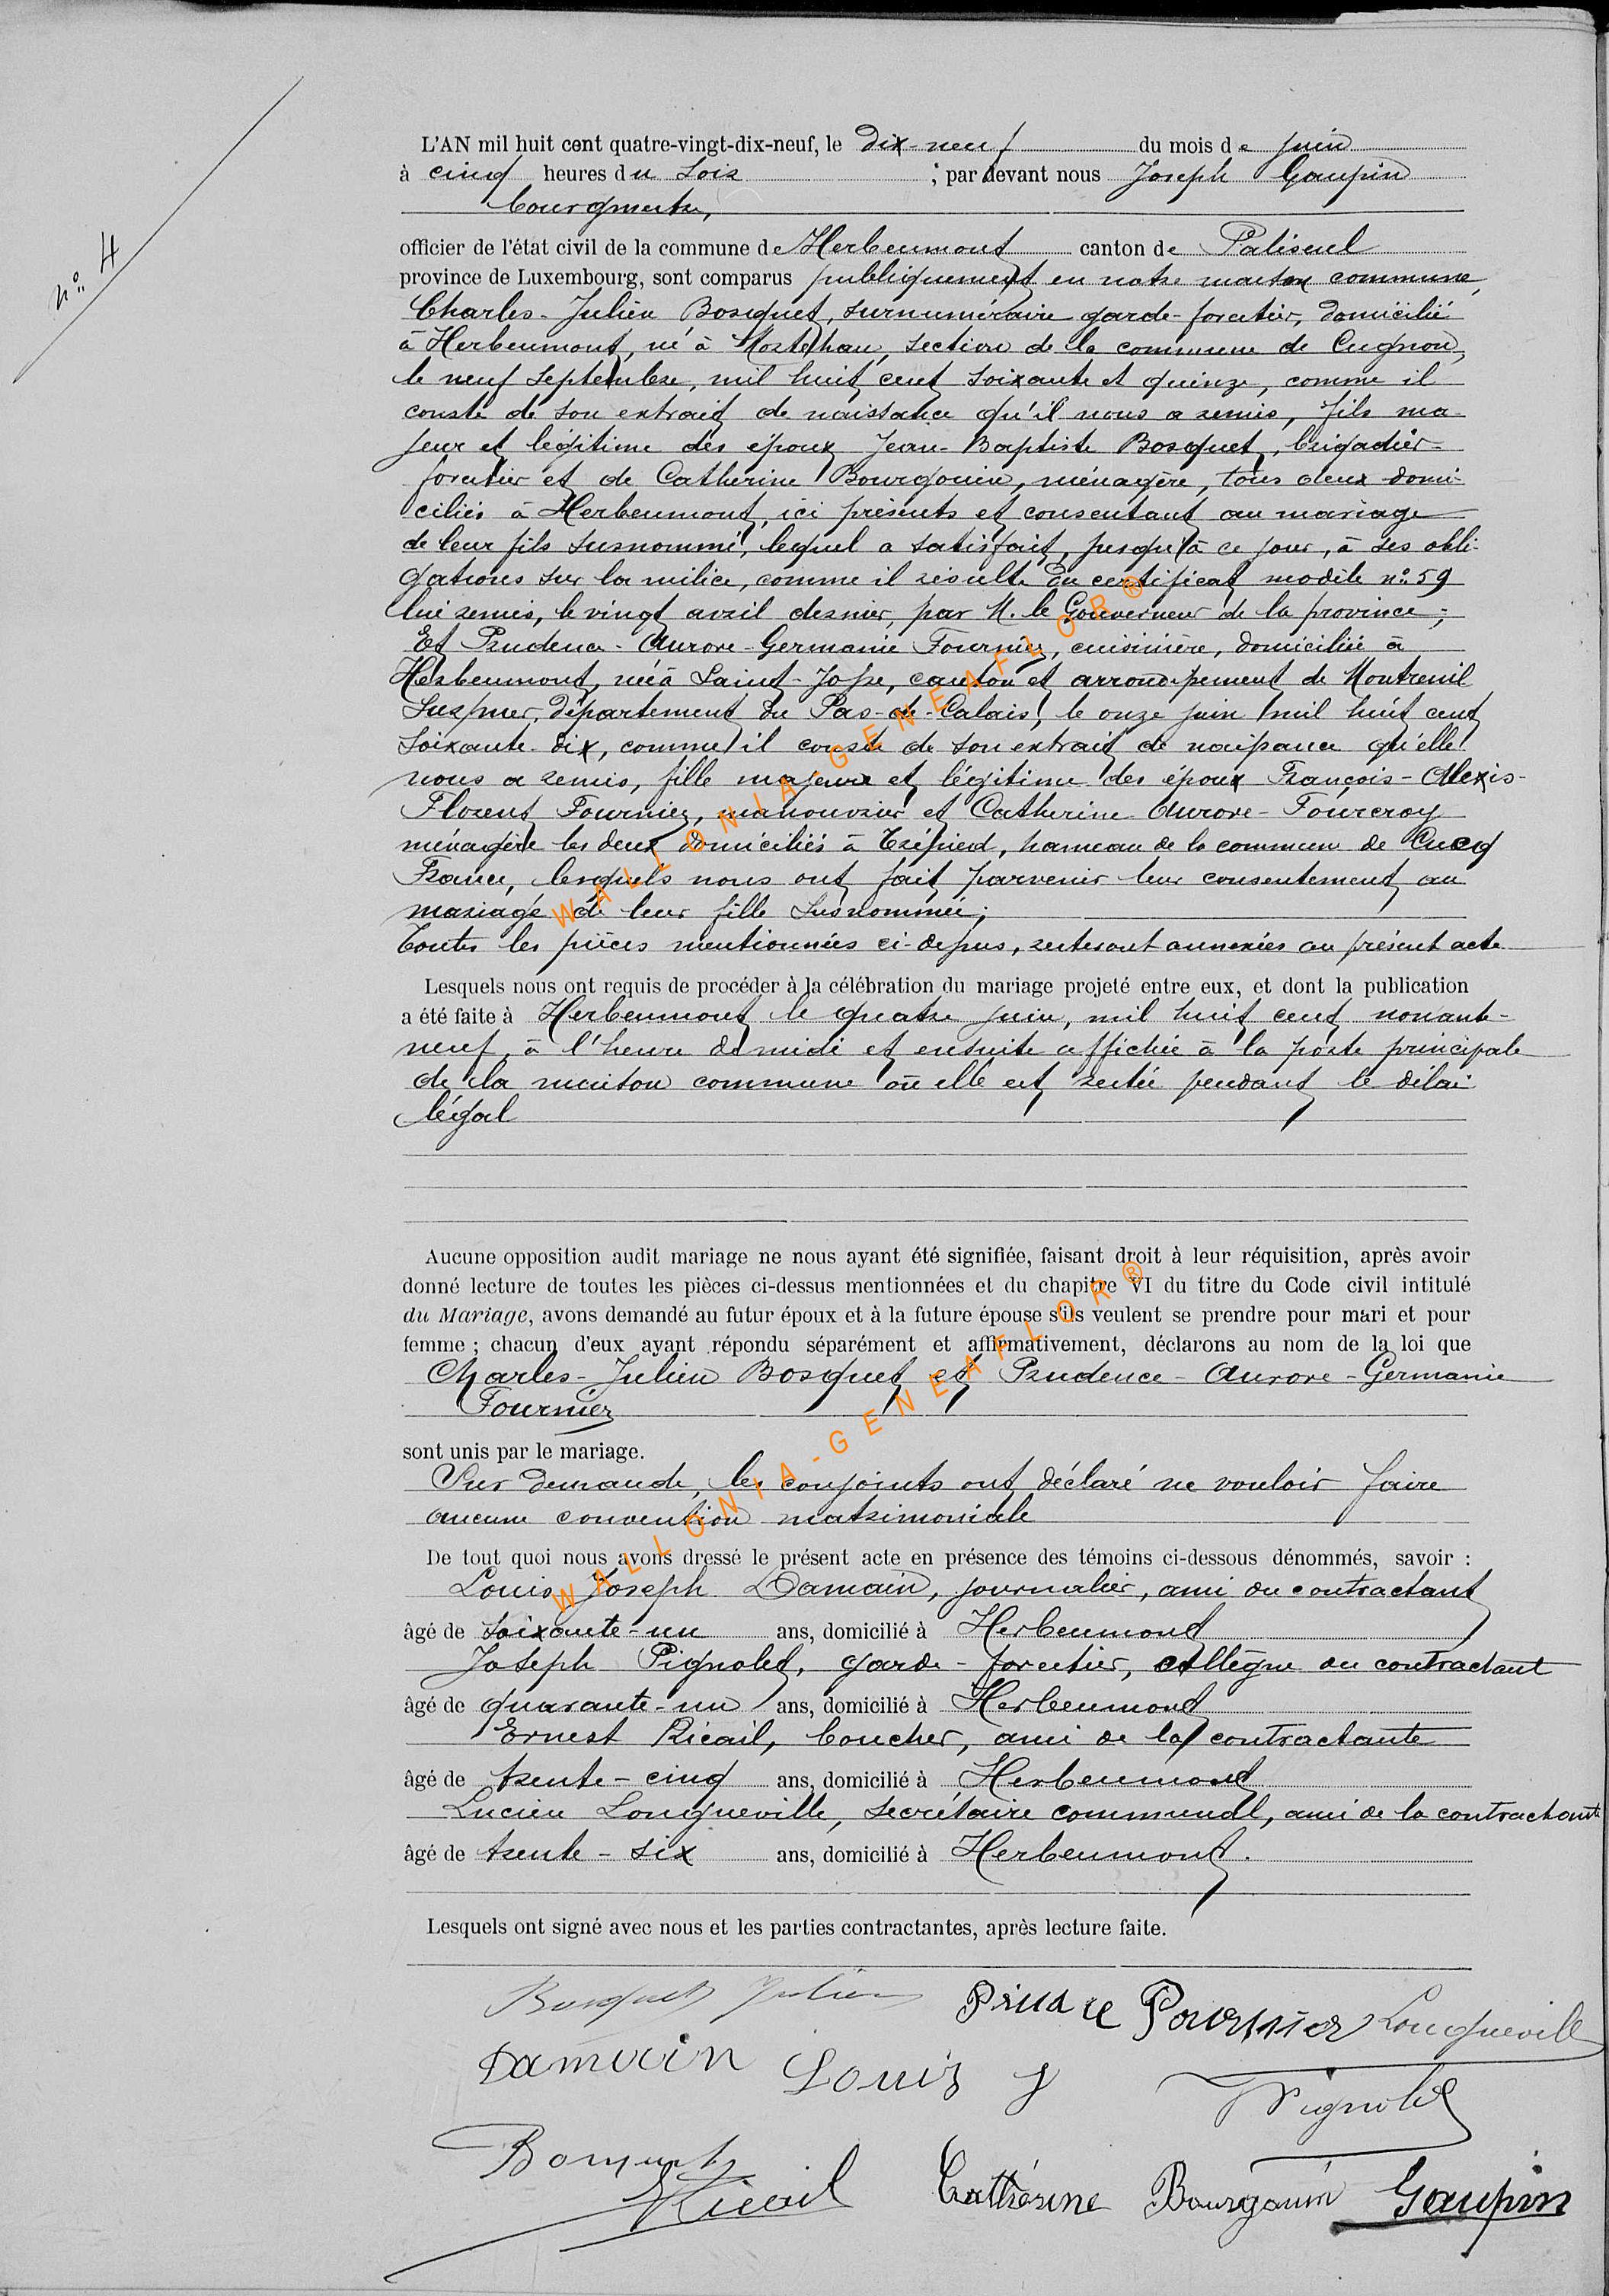 n° 4
L'AN mil huit cent quatre-vingt-dix-neuf, le dix-neuf du mois de juin
à cinq heures du soir ; par devant nous Joseph Gaupin
bourgmestre,
officier de l'état civil de la commune de Herbeumont canton de Paliseul
province de Luxembourg, sont comparus publiquement en notre maison commune,
Charles-Julien Bosquet, surnuméraire garde-forestier, domicilié
à Herbeumont, né à Mortehan, section de la commune de Cugnon,
le neuf septembre, mil huit cent soixante et quinze, comme il
conste de son extrait de naissance qu'il nous a remis, fils ma-
jeur et légitime des époux Jean-Baptiste Bosquet, brigadier-
forestier et de Catherine Bourgouin, ménagère, tous deux domi-
ciliés à Herbeumont, ici présents et consentant au mariage
de leur fils susnommé, lequel a satisfait, jusqu'à ce jour, à ses obli-
gations sur la milice, comme il résulte du certificat modèle n° 59
lui remis, le vingt avril dernier, par M. le Gouverneur de la province ;
Et Prudence-Aurore-Germanie Fournier, cuisinière, domiciliée à
Herbeumont, née à Saint-Josse, canton et arrondissement de Montreuil
sur mer, département du Pas-de-Calais, le onze juin mil huit cent
soixante-dix, comme il conste de son extrait de naissance qu'elle
nous a remis, fille majeure et légitime des époux François-Alexis-
Florent Fournier, manouvrier et Catherine Aurore-Fourcroy
ménagère les deux domiciliés à Trépied, hameau de la commune de Cucq
France, lesquels nous ont fait parvenir leur consentement au
mariage de leur fille susnommée ;
Toutes les pièces mentionnées ci-dessus, resteront annexées au présent acte
Lesquels nous ont requis de procéder à la célébration du mariage projeté entre eux, et dont la publication
a été faite à Herbeumont le quatre juin, mil huit cent nonante-
neuf, à l'heure de midi et ensuite affichée à la porte principale
de la maison commune où elle est restée pendant le délai
légal
Aucune opposition audit mariage ne nous ayant été signifiée, faisant droit à leur réquisition, après avoir
donné lecture de toutes les pièces ci-dessus mentionnées et du chapitre VI du titre du Code civil intitulé
du Mariage, avons demandé au futur époux et à la future épouse s'ils veulent se prendre pour mari et pour
femme ; chacun d'eux ayant répondu séparément et affirmativement, déclarons au nom de la loi que
Charles-Julien Bosquet et Prudence-Aurore-Germanie
Fournier
sont unis par le mariage.
Sur demande, les conjoints ont déclaré ne vouloir faire
aucune convention matrimoniale
De tout quoi nous avons dressé le présent acte en présence des témoins ci-dessous dénommés, savoir :
Louis Joseph Damain, journalier, ami du contractant
âgé de soixante-un ans, domicilié à Herbeumont
Joseph Pignolet, garde-forestier, collègue du contractant
âgé de quarante-un ans, domicilié à Herbeumont
Ernest Ricail, boucher, ami de la contractante
âgé de trente-cinq ans, domicilié à Herbeumont
Lucien Longueville, secrétaire communal, ami de la contractante
âgé de trente-six ans, domicilié à Herbeumont.
Lesquels ont signé avec nous et les parties contractantes, après lecture faite.
Bosquet Julien Prudence Fournier Longueville
Damain Louis J Pignolet
Bosquet
ERicail Catherine Bourgouin Gaupin
WALLONIA-GENEAFLOR®
WALLONIA-GENEAFLOR®